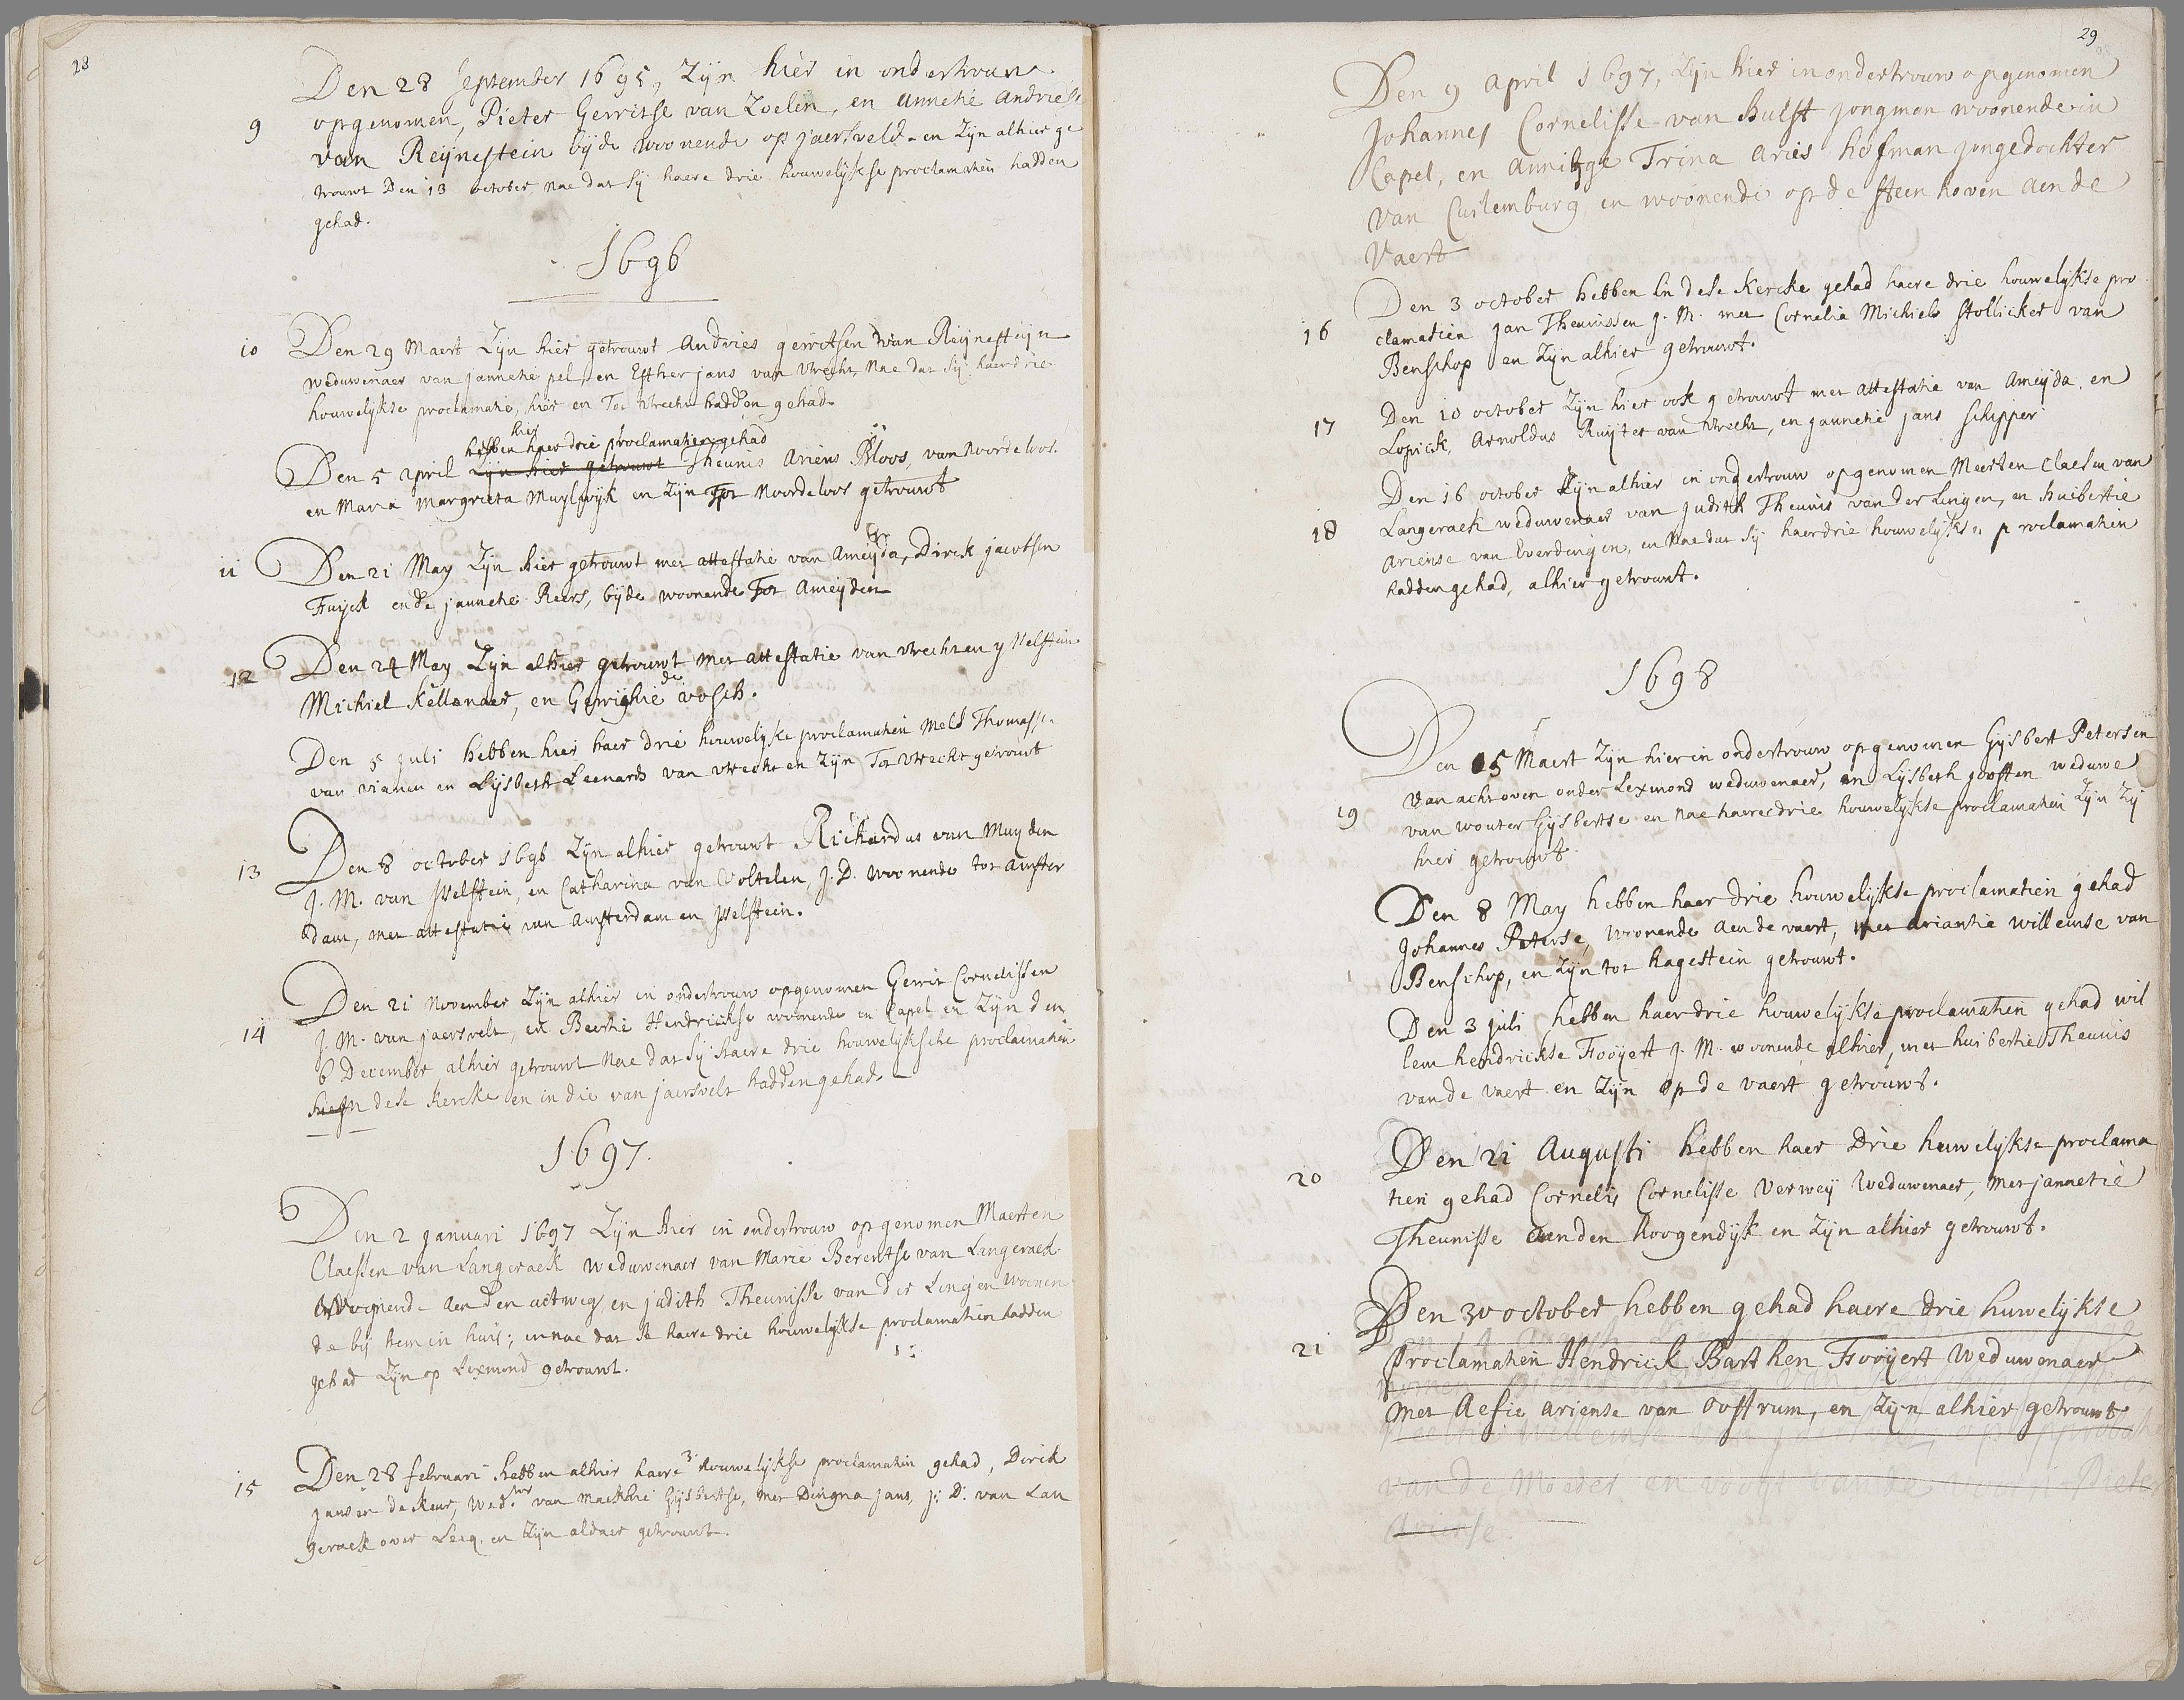 28
Den 28 September 1695, Zijn hier in ondertrouw
9
opgenomen, Pieter Gerritse van Zoelen, en Annetie Andriesse
van Reijnestein bijde woonende op jaersveld en Zijn alhier ge
trouwt Den 13 october, nae dat sij haere drie houwelijkse proclamatien hadden
gehad.
1696
10
Den 29 Maert Zijn hier getrouwt Andries gerritsen van Reijnesteijn
weduwenaer van jannetie pel, en Esther jans van Utrecht, nae dat sij haer drie
houwelijkse proclamatie, hier en Tot Utrecht hadden gehad.
hier
hebben haer drie proclamatien gehad
Den 5 april Zijn hier getrouwt Theunis Ariens Bloos, van Noordeloos.
en Maria Margrieta Muijlwijk en Zijn Tot Noordeloos getrouwt
11
Den 21 May Zijn hier getrouwt met attestatie van Ameijda, Dirck jacobsen
Fuijck ende jannetie Reers, bijde woonende Tot Ameijden
12
Den 24 May Zijn alhier getrouwt met attestatie van Utrecht en ysselstein
Michiel Kellenaer, en Gerrighie de vosch.
Den 5 juli hebben hier haer drie houwelijkse proclamatien Mels Thomasse
van vianen en Lijsbeth Leenards van utrecht en Zijn Tot Utrecht getrouwt
13
Den 8 october 1696 Zijn alhier getrouwt Richardus van Muyden
J. M. van Jsselstein, en Catharina van Voltelen, J. D. woonende tot Amster
dam, met attestatie van Amsterdam en Jsselstein.
Den 21 November Zijn alhier in ondertrouw opgenomen Gerrit Cornelissen
14
J. M. van jaersvelt, en Beertie Hendrickse woonende in Capel en Zijn den
6 December alhier getrouwt nae dat sij haere drie houwelijksche proclamatien
hier in dese Kercke en in die van jaersvelt hadden gehad.
1697.
Den 2 januari 1697 Zijn hier in ondertrouw opgenomen Maerten
Claessen van Langeraek weduwenaer van Marie Berentse van Langeraek
woonende aen den uitweg en judith Theunisse van der Lingen woonen
de bij hem in huis; en nae dat se haere drie houwelijkse proclamatien hadden
gehad Zijn op Lexmond getrouwt.
15
Den 28 februari hebben alhier haere 3. houwelijkse proclamatien gehad, Dirck
jansen de Keur, Wed.nr van Maekhie Gijsbertse, met Dingna jans, J: D: van Lan
geraek over Lecq. en Zijn aldaer getrouwt.
29
Den 9 April 1697, Zijn hier in ondertrouw opgenomen
Johannes Cornelisse van Hulst jongman woonende in
Capel, en Annitge Trina Aries hofman jongedochter
van Cuilemburg en woonende op de steen hoven aen de
Vaert
16
Den 3 october hebben in dese Kercke gehad haere drie houwelijkse pro
clamatien jan Theunissen J. M. met Cornelia Michiels Stollicker van
Benschop en Zijn alhier getrouwt.
17
Den 10 october Zijn hier ook getrouwt met attestatie van Ameijda en
Lopick, Arnoldus Ruijter van Utrecht, en jannetie jans schipper
18
Den 16 october Zijn alhier in ondertrouw opgenomen Meerten Claesen van
Langeraek weduwenaer van judith Theunis van der Lingen, en Huibertie
Ariense van Everdingen, en nae dat sij haer drie houwelijkse proclamatien
hadden gehad, alhier getrouwt.
1698
Den 15 Maert Zijn hier in ondertrouw opgenomen Gijsbert Petersen
van achtoven onder Lexmond weduwenaer, en Lijsbeth joosten weduwe
19
van wouter Gijsbertse en nae haere drie houwelijkse proclamatien Zijn Zij
hier getrouwt
Den 8 May hebben haer drie houwelijkse proclamatien gehad
Johannes Peterse, woonende aen de vaert, met Ariantie willemse van
Benschop, en Zijn tot Hagestein getrouwt.
Den 3 juli hebben haer drie houwelijkse proclamatien gehad wil
lem hendrickse Fooijert J. M. woonende alhier, met huibertie Theunis
van de vaert en Zijn op de vaert getrouwt.
20
Den 21 Augusti hebben haer drie huwelijkse proclama
tien gehad Cornelis Cornelisse Verweij Weduwenaer, met jannetie
Theunisse aen den Hoogendijk en Zijn alhier getrouwt.
21
Den 30 october hebben gehad haere drie huwelijkse
proclamatien Hendrick Barthen Fooijert Weduwenaer
met Aefie Ariense van Oostrum, en Zijn alhier getrouwt
van de Moeder en voogt van de Pieter
Ariense.